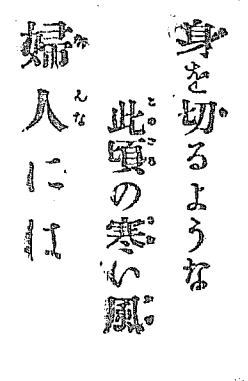 身を切るような
此頃の寒い風
婦人には